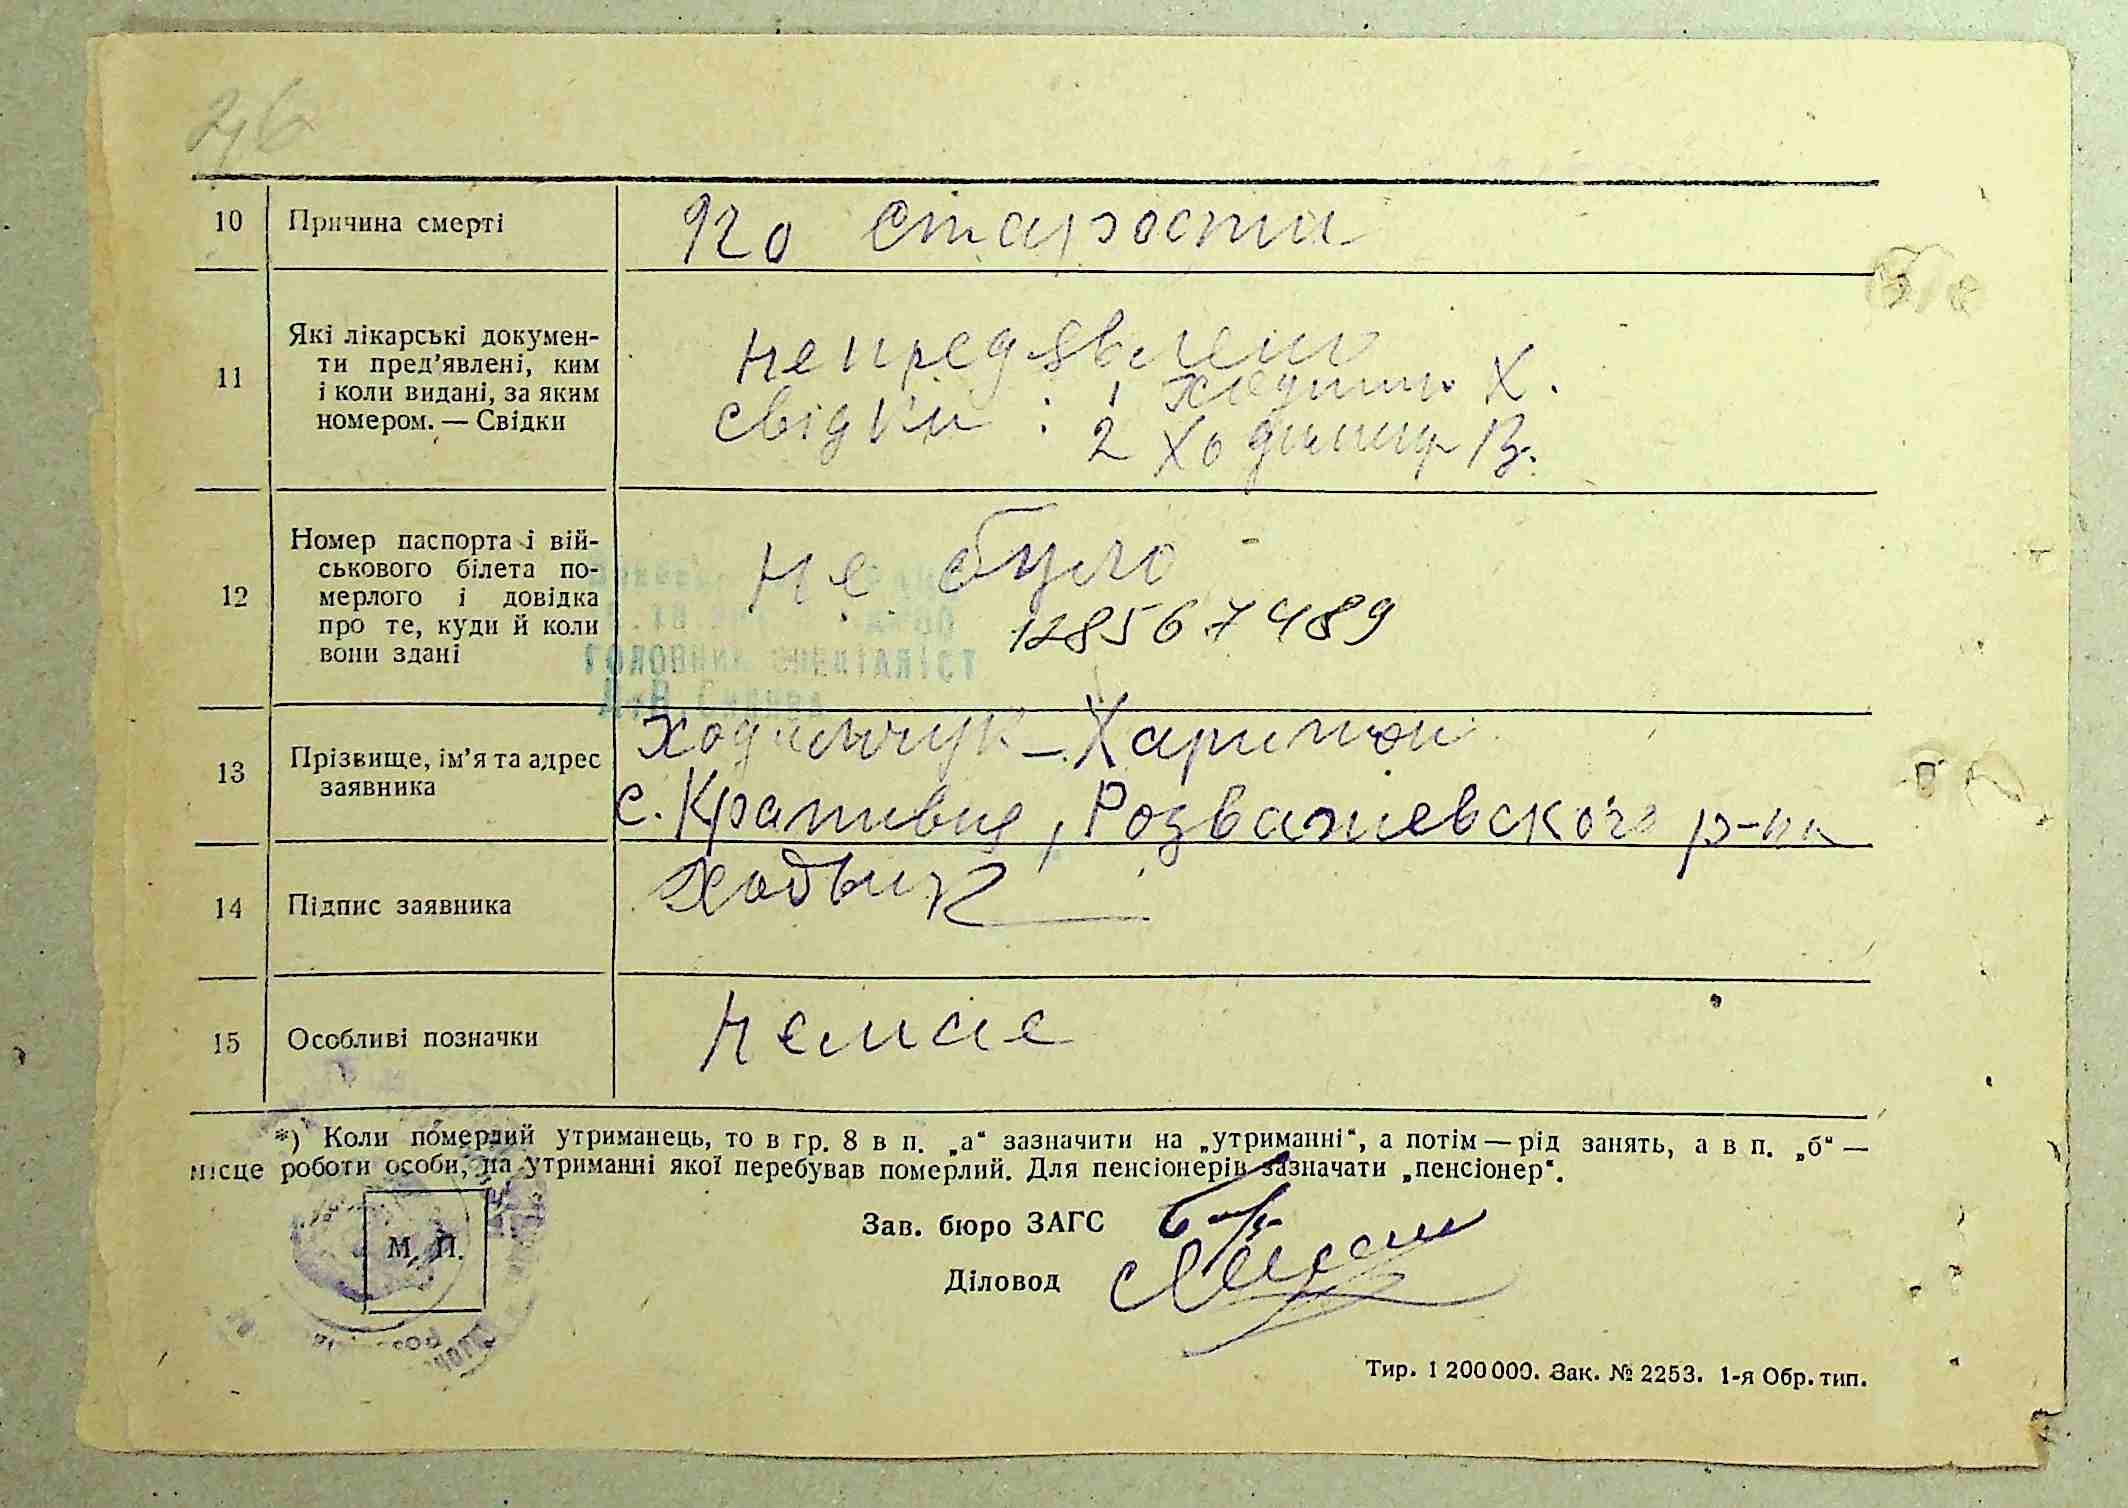 10 Причина смерті
По старости
11 Які лікарські докумен-
ти пред'явлені, ким
і коли видані, за яким
номером. — Свідки
не предявлено
свідки : 1 Х.
2 В.
12 Номер паспорта і вій-
ськового білета по-
мерлого і довідка
про те, куди й коли
вони здані
не було
ГОЛОВНИЙ СПЕЦІАЛІСТ
13 Прізвище, ім'я та адрес
заявника
Ходимчук Харитон
с. Крапивня, Розважевского р-на
14 Підпис заявника
15 Особливі позначки
немає
*) Коли померлий утриманець, то в гр. 8 в п. „а“ зазначити на „утриманні“, а потім — рід занять, а в п. „б“ —
місце роботи особи, на утриманні якої перебував померлий. Для пенсіонерів зазначати „пенсіонер“.
М. П.
Зав. бюро ЗАГС
Діловод
Тир. 1 200 000. Зак. № 2253. 1-я Обр. тип.